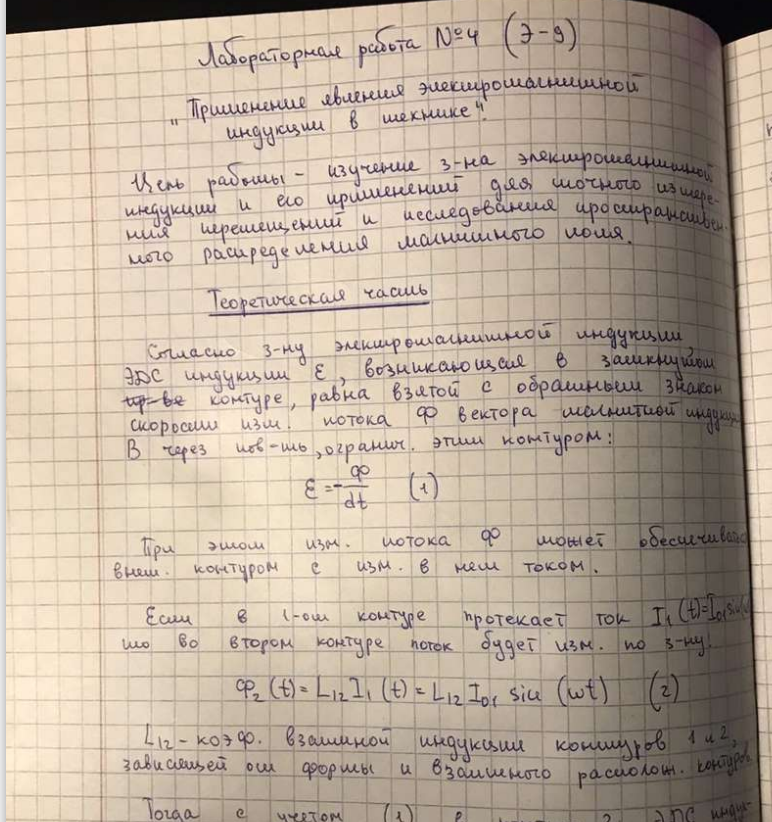 Лабораторная работа №4 (Э-9)
"Применение явления электромагнитной
индукции в технике".
Цель работы - изучение з-на электромагнитной
индукции и его применений для точного измере-
ния перемещений и исследования пространствен-
ного распределения магнитного поля.
Теоретическая часть
Согласно з-ну электромагнитной индукции,
ЭДС индукции ε, возникающая в замкнутом
контуре, равна взятой с обратным знаком
скорости изм. потока Ф вектора магнитной индукции
B через пов-ть, огранич. этим контуром:
ε = - Ф/dt (1)
При этом изм. потока Ф может обеспечиваться
внеш. контуром с изм. в нем током.
Если в 1-ом контуре протекает ток I₁(t)=I₀₁sin(ω
то во втором контуре поток будет изм. по з-ну:
Ф₂(t) = L₁₂I₁(t) = L₁₂I₀₁ sin (ωt) (2)
L₁₂ - коэф. взаимной индукции контуров 1 и 2,
зависящей от формы и взаимного располож. контуров
Тогда с учетом (1) в 2 ЭДС индук-